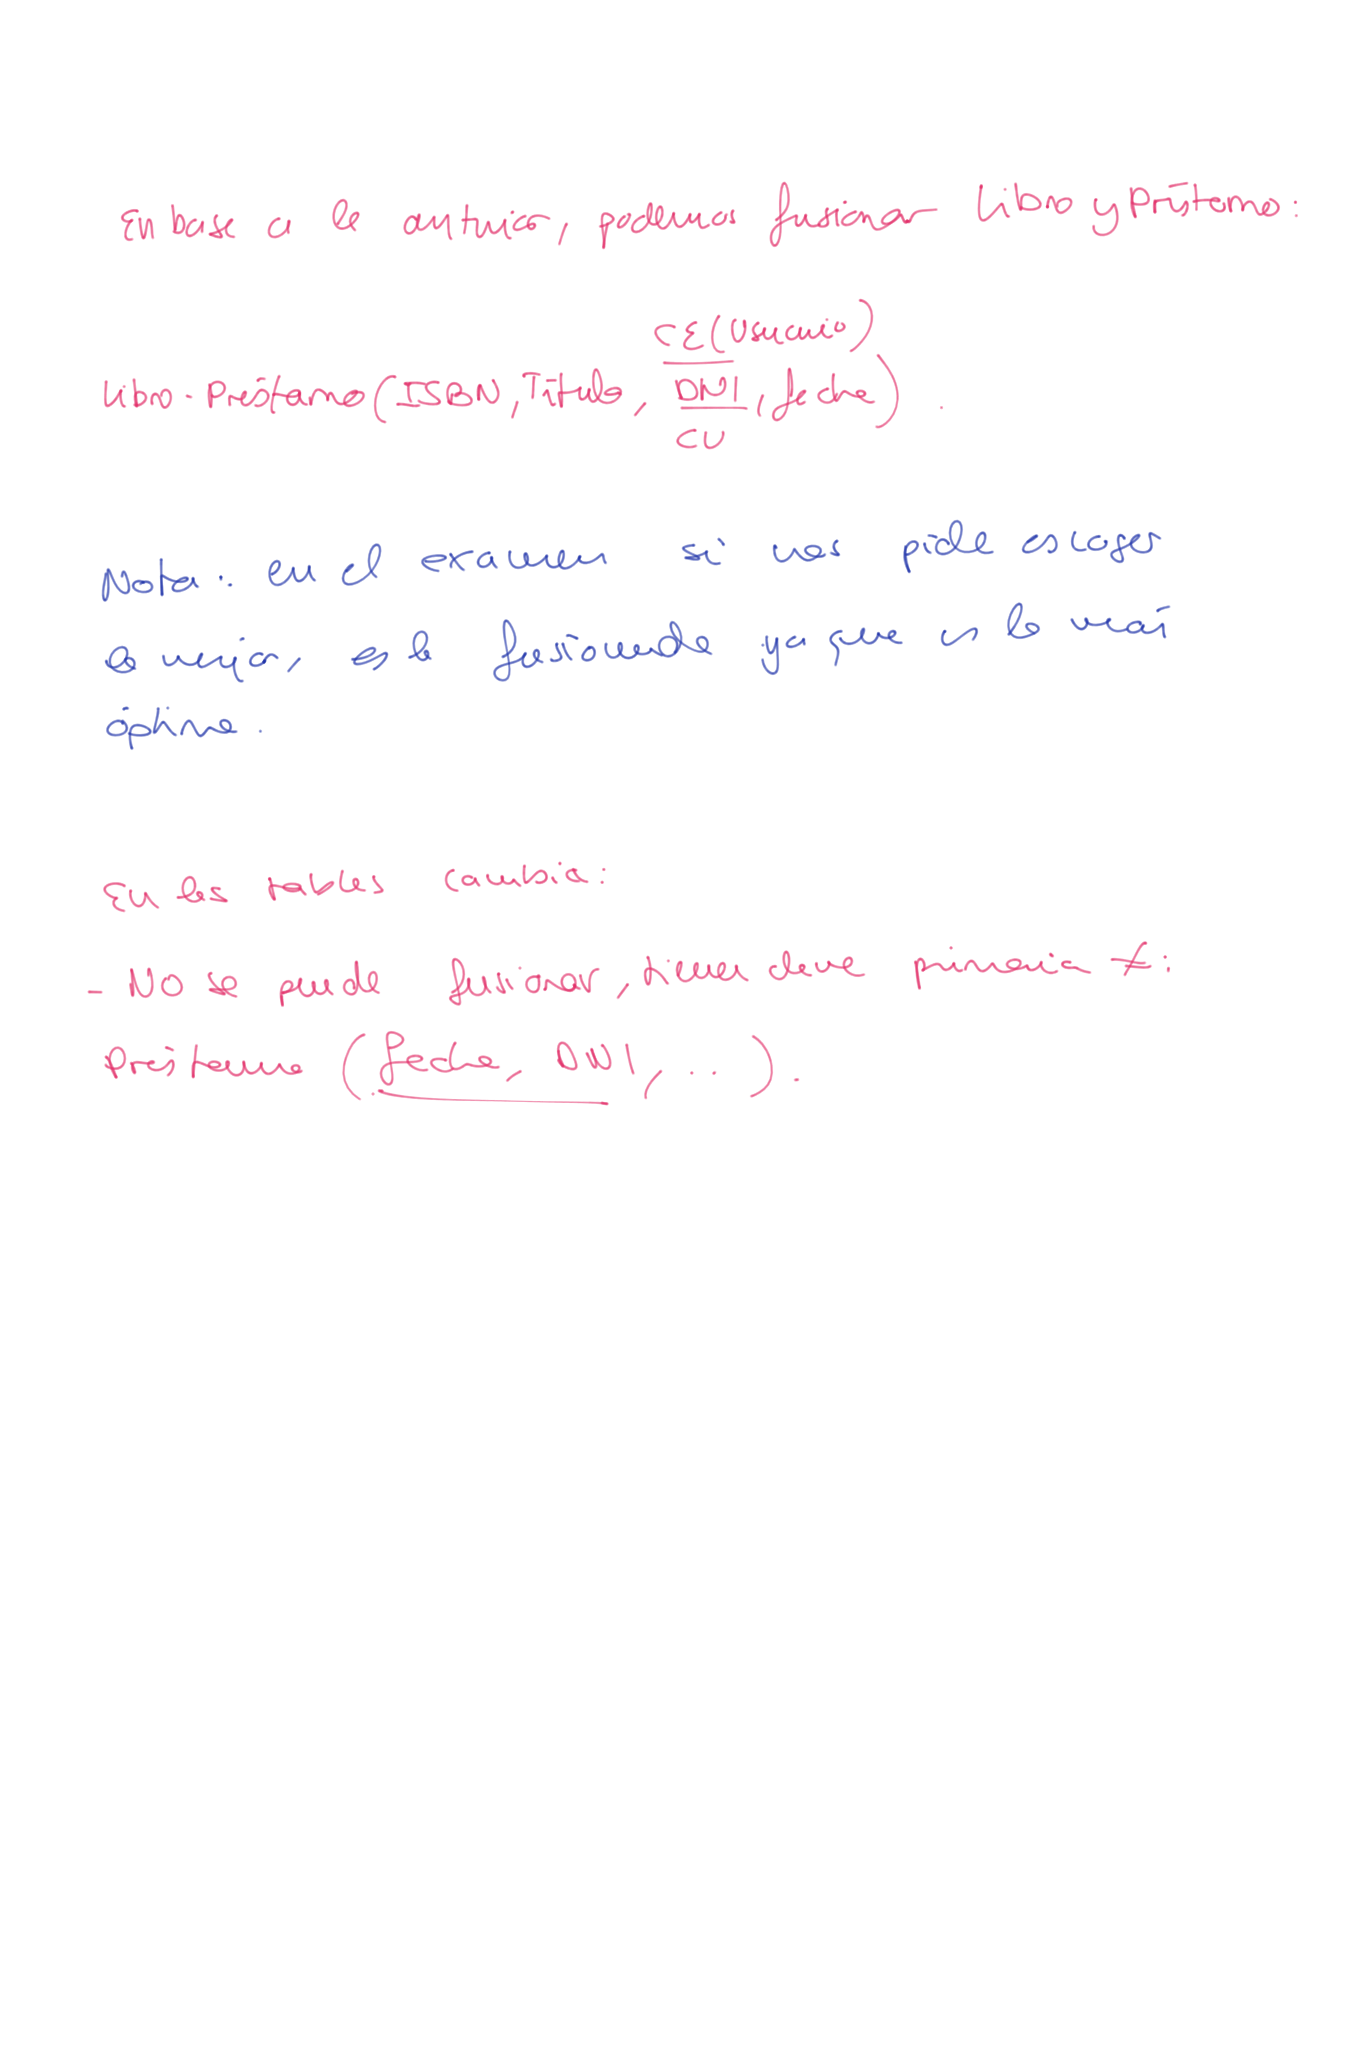 En base a lo anterior, podemos fusionar Libro y Préstamo:
CE(Usuario)
Libro-Préstamo(ISBN, Título, DNI, fecha).
CU
Nota: en el examen si nos pide escoger
la mejor, es la fusionada ya que es la más
óptima.
En las tablas cambia:
- No se puede fusionar, tienen clave primaria ≠:
Préstamo (fecha, DNI, ..).